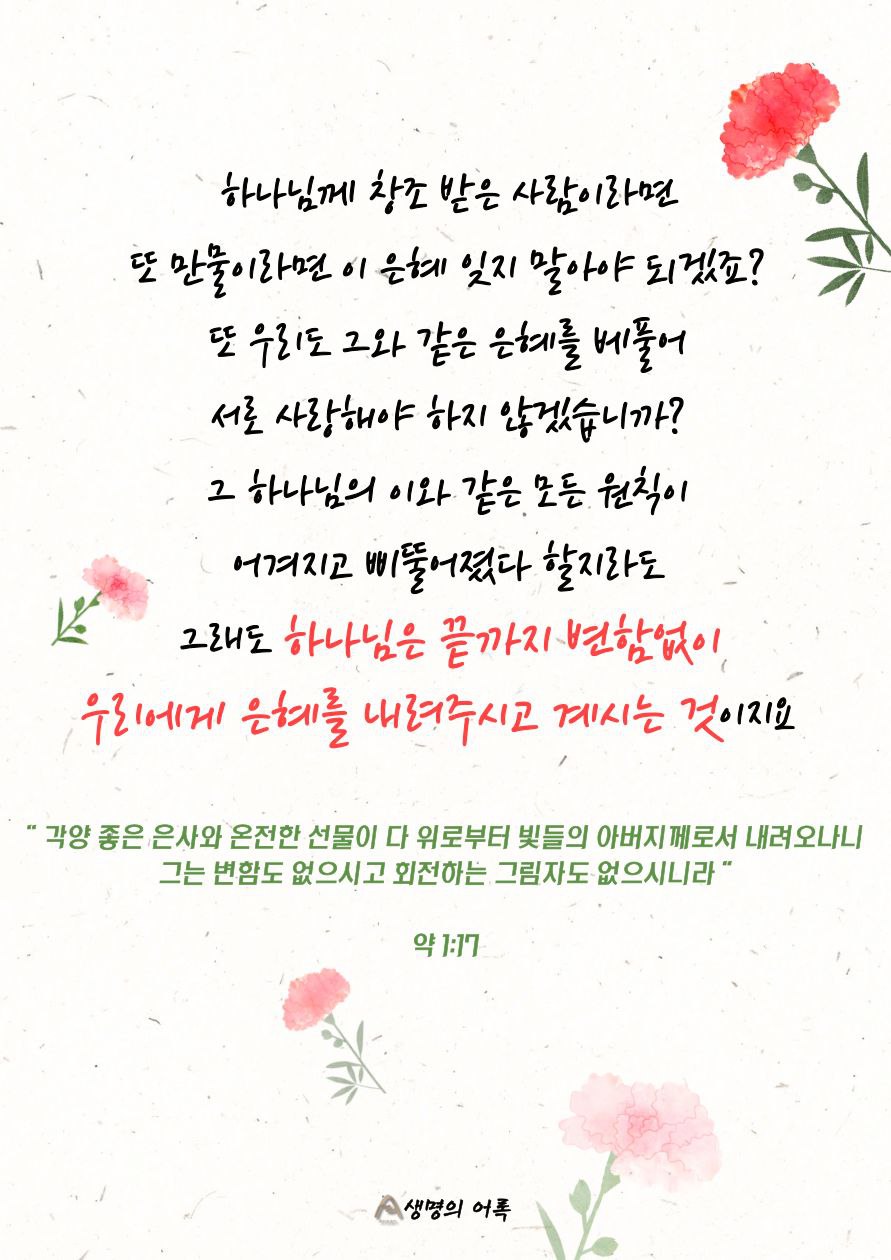 하나님께 창조 받은 사람이라면
또 만물이라면 이 은혜 잊지 말아야 되겠죠?
또 우리도 그와 같은 은혜를 베풀어
서로 사랑해야 하지 않겠습니까?
그 하나님의 이와 같은 모든 원칙이
어겨지고 삐뚤어졌다 할지라도
그래도 하나님은 끝까지 변함없이
우리에게 은혜를 내려주시고 계시는 것이지요
" 각양 좋은 은사와 온전한 선물이 다 위로부터 빛들의 아버지께로서 내려오나니
그는 변함도 없으시고 회전하는 그림자도 없으시니라 "
약 1:17
생명의 어록